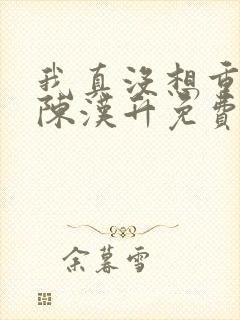 我真没想重
陈汉升免费
余慕雪